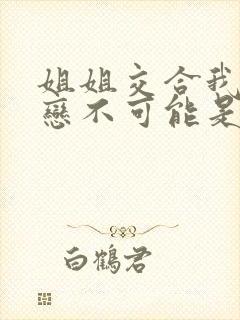 姐姐交合我
戀不可能是
白鶴君